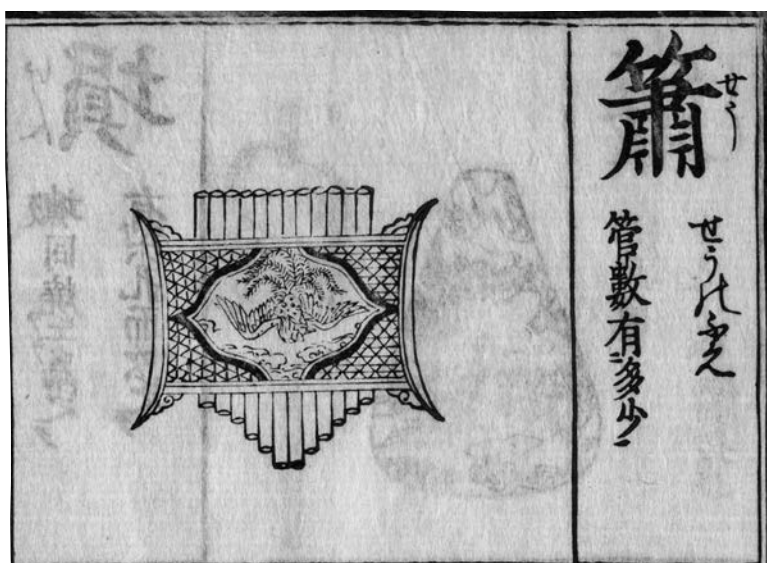 簫
せう
せうのふえ
管數有多少